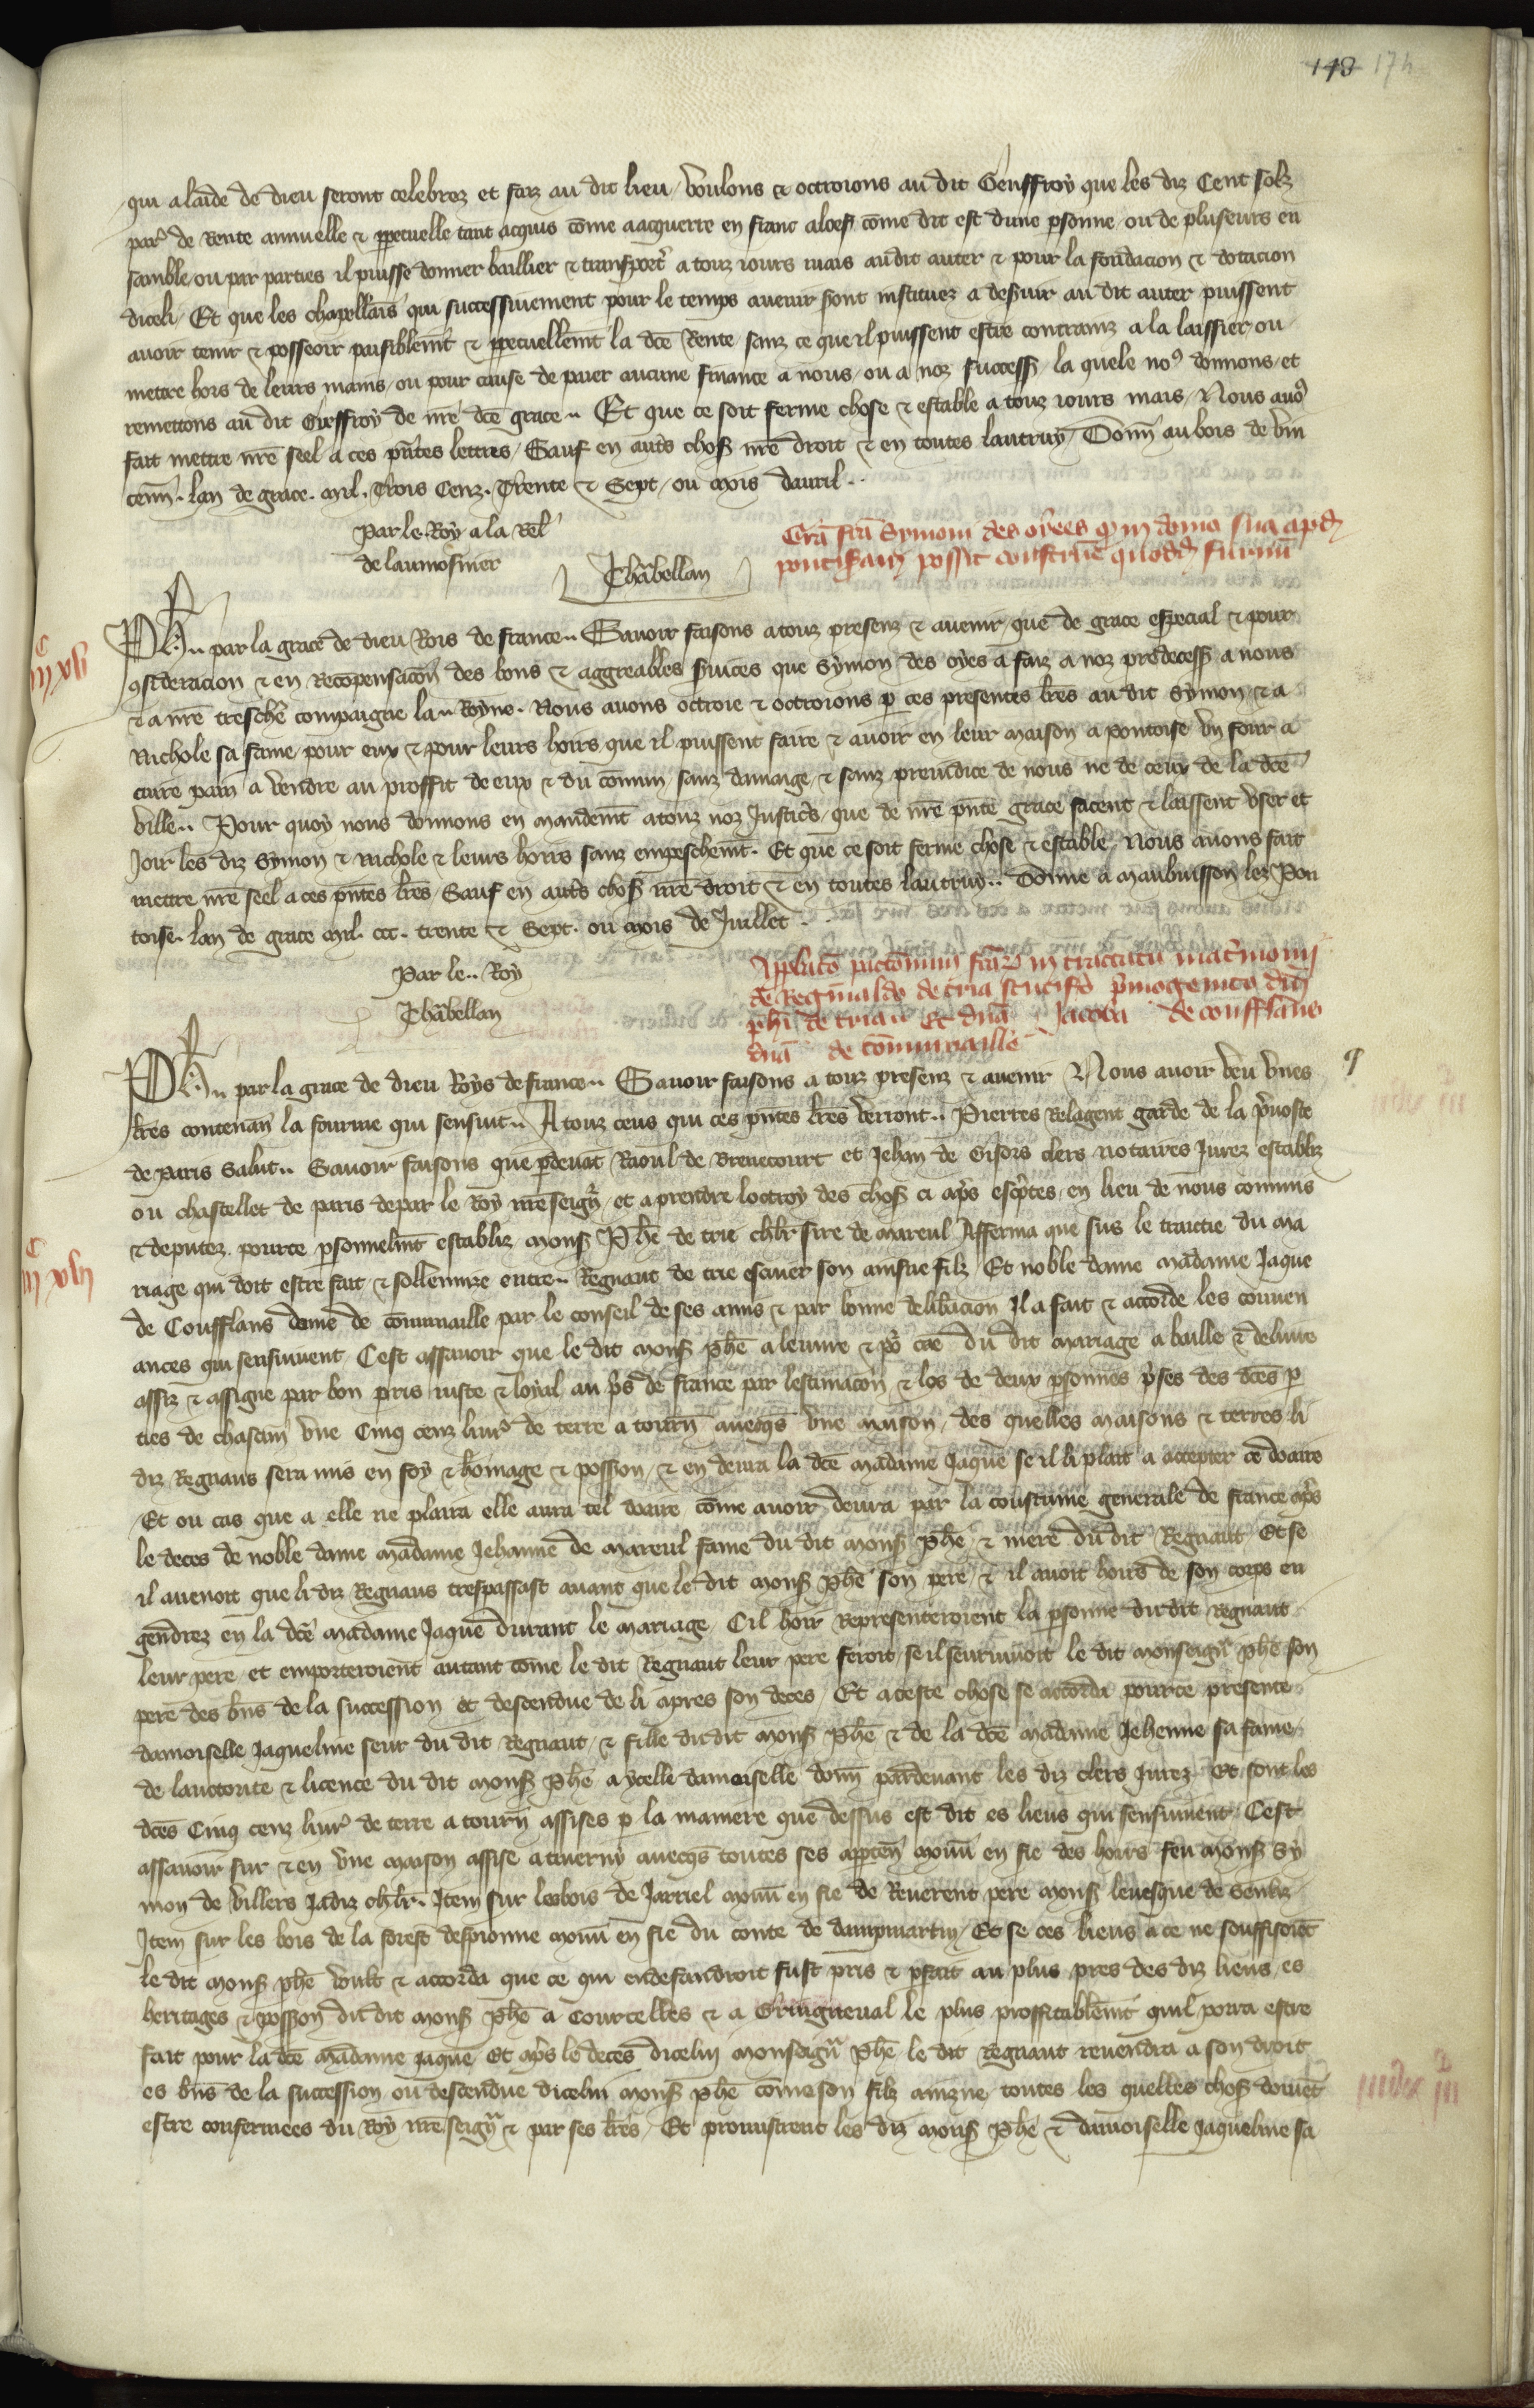 148 174
qui a laide de dieu seront celebrez et faiz au dit lieu / Voulons & octroions au dit Geuffroy que les diz Cent solz
par̃ de Rente annuelle & ꝑpetuelle tant acquis cõme a acquerre en franc aloef cõme dit est dune ꝑsonne / ou de pluseurs en
samble ou par parties il puisse donner baillier & transport̾ a touz iours mais audit auter & pour la fondacion & dotacion
diceli / Et que les chapellains qui successiuement pour le temps auenir sont instituez a desuir au dit auter puissent
auoir tenir & posseoir paisiblem̃t & ꝑpetuellem̃t la dc̃e Rente / sanz ce que il puissent estre contrainz a la laissier / ou
mettre hors de leurs mains / ou pour cause de paier aucune finance a nous / ou a noz success̃ / la quele noꝰ donnons / et
remettons au dit Gieffroy de nr̃e dc̃e grace .. Et que ce soit ferme chose & estable a touz iours mais / Nous auõs
fait mettre nr̃e seel a ces pñtes lettres / Sauf en aut̾s choses nr̃e droit & en toutes lautruy / Donñ au bois de Vin
cenñ . lan de grace . mil . Trois Cenz . Trente & Sept / ou mois dauril ..
Par le Roy a la Rel̃
de laumosnier
Chãbellan
Grã fcã Symoni des oyees qͥ in domo sua apđ
pontisaram possit construe̾ quoddã furnũ
C
iiij xvij
Ph̃ .. par la grace de dieu Rois de france .. Sauoir faisons a touz presenz & auenir / que de grace especial & pour
ꝯsideracion & en Recõpensacõn des bons & aggreables ẜuices que Symon des oyes a faiz a noz predecess̃ a nous
& a nr̃e treschr̃e compaigne la .. Royne . Nous auons octroie & octroions ꝑ ces presentes lr̃es au dit Symon / & a
Nichole sa fame / pour eux & pour leurs hoirs que il puissent faire & auoir en leur maison a pontoise vn four a
cuire pain a vendre au proffit de eux & du cõmun / sanz damaige / & sanz preiudice de nous ne de ceux de la dc̃e
ville .. Pour quoy nous donnons en mandem̃t a touz noz Justic̃s / que de nr̃e pñte grace facent & laissent vser et
Joir les diz Symon & Nichole & leurs hoirs sanz empeschem̃t . Et que ce soit ferme chose & estable . Nous auons fait
mettre nr̃e seel a ces pñtes lr̃es Sauf en aut̾s choses nr̃e droit & en toutes lautruy .. Donne a maubuisson lez Pon
toise . lan de grace mil . ccc . trente & Sept . ou mois de Juillet .
Par le .. Roy
Chãbellan
Applacõ pactionum fcãꝝ in tractatu mat̾monij
de Reginaldo de tria scutif̾o p̾mogenito dñi
ph̃i de tria .. Et dñã Jacoba de confflans
dñã de cõmunaille
C
iiij xviij
Ph̃ .. par la grace de dieu Roys de france .. Sauoir faisons a touz presenz & auenir Nous auoir veu vnes
lr̃es contenañ la fourme qui sensuit .. A touz ceus qui ces pñtes lr̃es verront .. Pierres Belagent garde de la p̾uoste
de Paris Salut .. Sauoir faisons que ꝑdeuãt Raoul de Breuecourt et Jehan de Gisors clers notaires Jurez establiz
ou chastellet de paris depar le Roy nr̃e seigñ / et a prendre loctroy des choses ci ap̃s esc̾ptes / en lieu de nous cõmis
& deputez . pource ꝑsonnelm̃t establiz mons̃ Ph̃e de trie chl̃r sire de Mareul Afferma que sus le traictie du ma
riage qui doit estre fait & sollennize entre .. Regnaut de trie escuier son ainsne filz / Et noble dame madame Jaque
de Confflans dame de cõmunaille par le conseil de ses amis & par bonne delib̾acion Il a fait & accorde les conuen
ances qui sensuiuent Cest assauoir que le dit mons̃ ph̃e a leurme & po̾ cãe du dit mariage a baille & deliure
assiz & assigne par bon pris iuste & loyal au p̾s de france par lestimacõn & los de deux ꝑsonnes p̾ses des dc̃es ꝑ
ties de chascun vne Cinq cenz liur̃ de terre a tourñ auecqs̃ vne maison / des quelles maisons & terres li
diz Regnaus sera mis en foy & hõmage & possion / & en deura la dc̃e madame Jaque se il li plait a accepter ce doaire
Et ou cas que a elle ne plaira elle aura tel doaire cõme auoir deura par la coustume generale de france ap̃s
le deces de noble dame madame Jehanne de Mareul fame du dit mons̃ ph̃e / & mere du dit Regnaut / Et se
il auenoit que li diz Regnaus trespassast auant que le dit mons̃ ph̃e son pere / & il auoit hoirs de son corps en
gendrez en la dc̃e madame Jaque durant le mariage / Cil hoir Representeroient la ꝑsonne dudit Regnaut
leur pere et emporteroient autant cõme le dit Regnaut leur pere feroit / se il seuruiuoit le dit monseigñ ph̃e son
pere des bñs de la succession et descendue de li apres son deces / Et a ceste chose se accorda pource presente
damoiselle Jaqueline seur du dit Regnaut / & fille du dit mons̃ Ph̃e & de la dc̃e madame Jehenne sa fame
de lauctorite & licence du dit mons̃ Ph̃e a ycelle damoiselle donñ pardeuant les diz clers Jurez Et sont les
dc̃es Cinq cenz liur̃ de terre a tourñ assises ꝑ la maniere que dessus est dit es lieus qui sensuiuent / Cest
assauoir sur & en vne maison assise a tauerny auecqs̃ toutes ses apꝑteñ mouũ en fie des hoirs feu mons̃ Sy
mon de Villers Jadiz chl̃r . Item sur lesbois de Jarriel mouũ en fie de Reuerent pere mons̃ leuesque de Senliz
Item sur les bois de la forest despionne mouũ en fie du conte de dampmartin / Et se ces lieus a ce ne souffisoiẽt
le dit mons̃ ph̃e voult & accorda que ce qui endefaudroit fust pris & ꝑfait au plus pres des diz lieus / es
heritages & possion du dit mons̃ Ph̃e a Courcelles & a Gringneual le plus proffitablem̃t quil porra estre
fait pour la dc̃e madame Jaque Et ap̃s le deces dicelui monseigñ Ph̃e le dit Regnaut reuendra a son droit
es bñs de la succession ou descendue dicelui mons̃ ph̃e cõme son filz ainzne toutes les quelles choses doiuẽt
estre confermees du Roy nr̃e seigñ & par ses lr̃es / Et promistrent les diz mons̃ Ph̃e & damoiselle Jaqueline sa